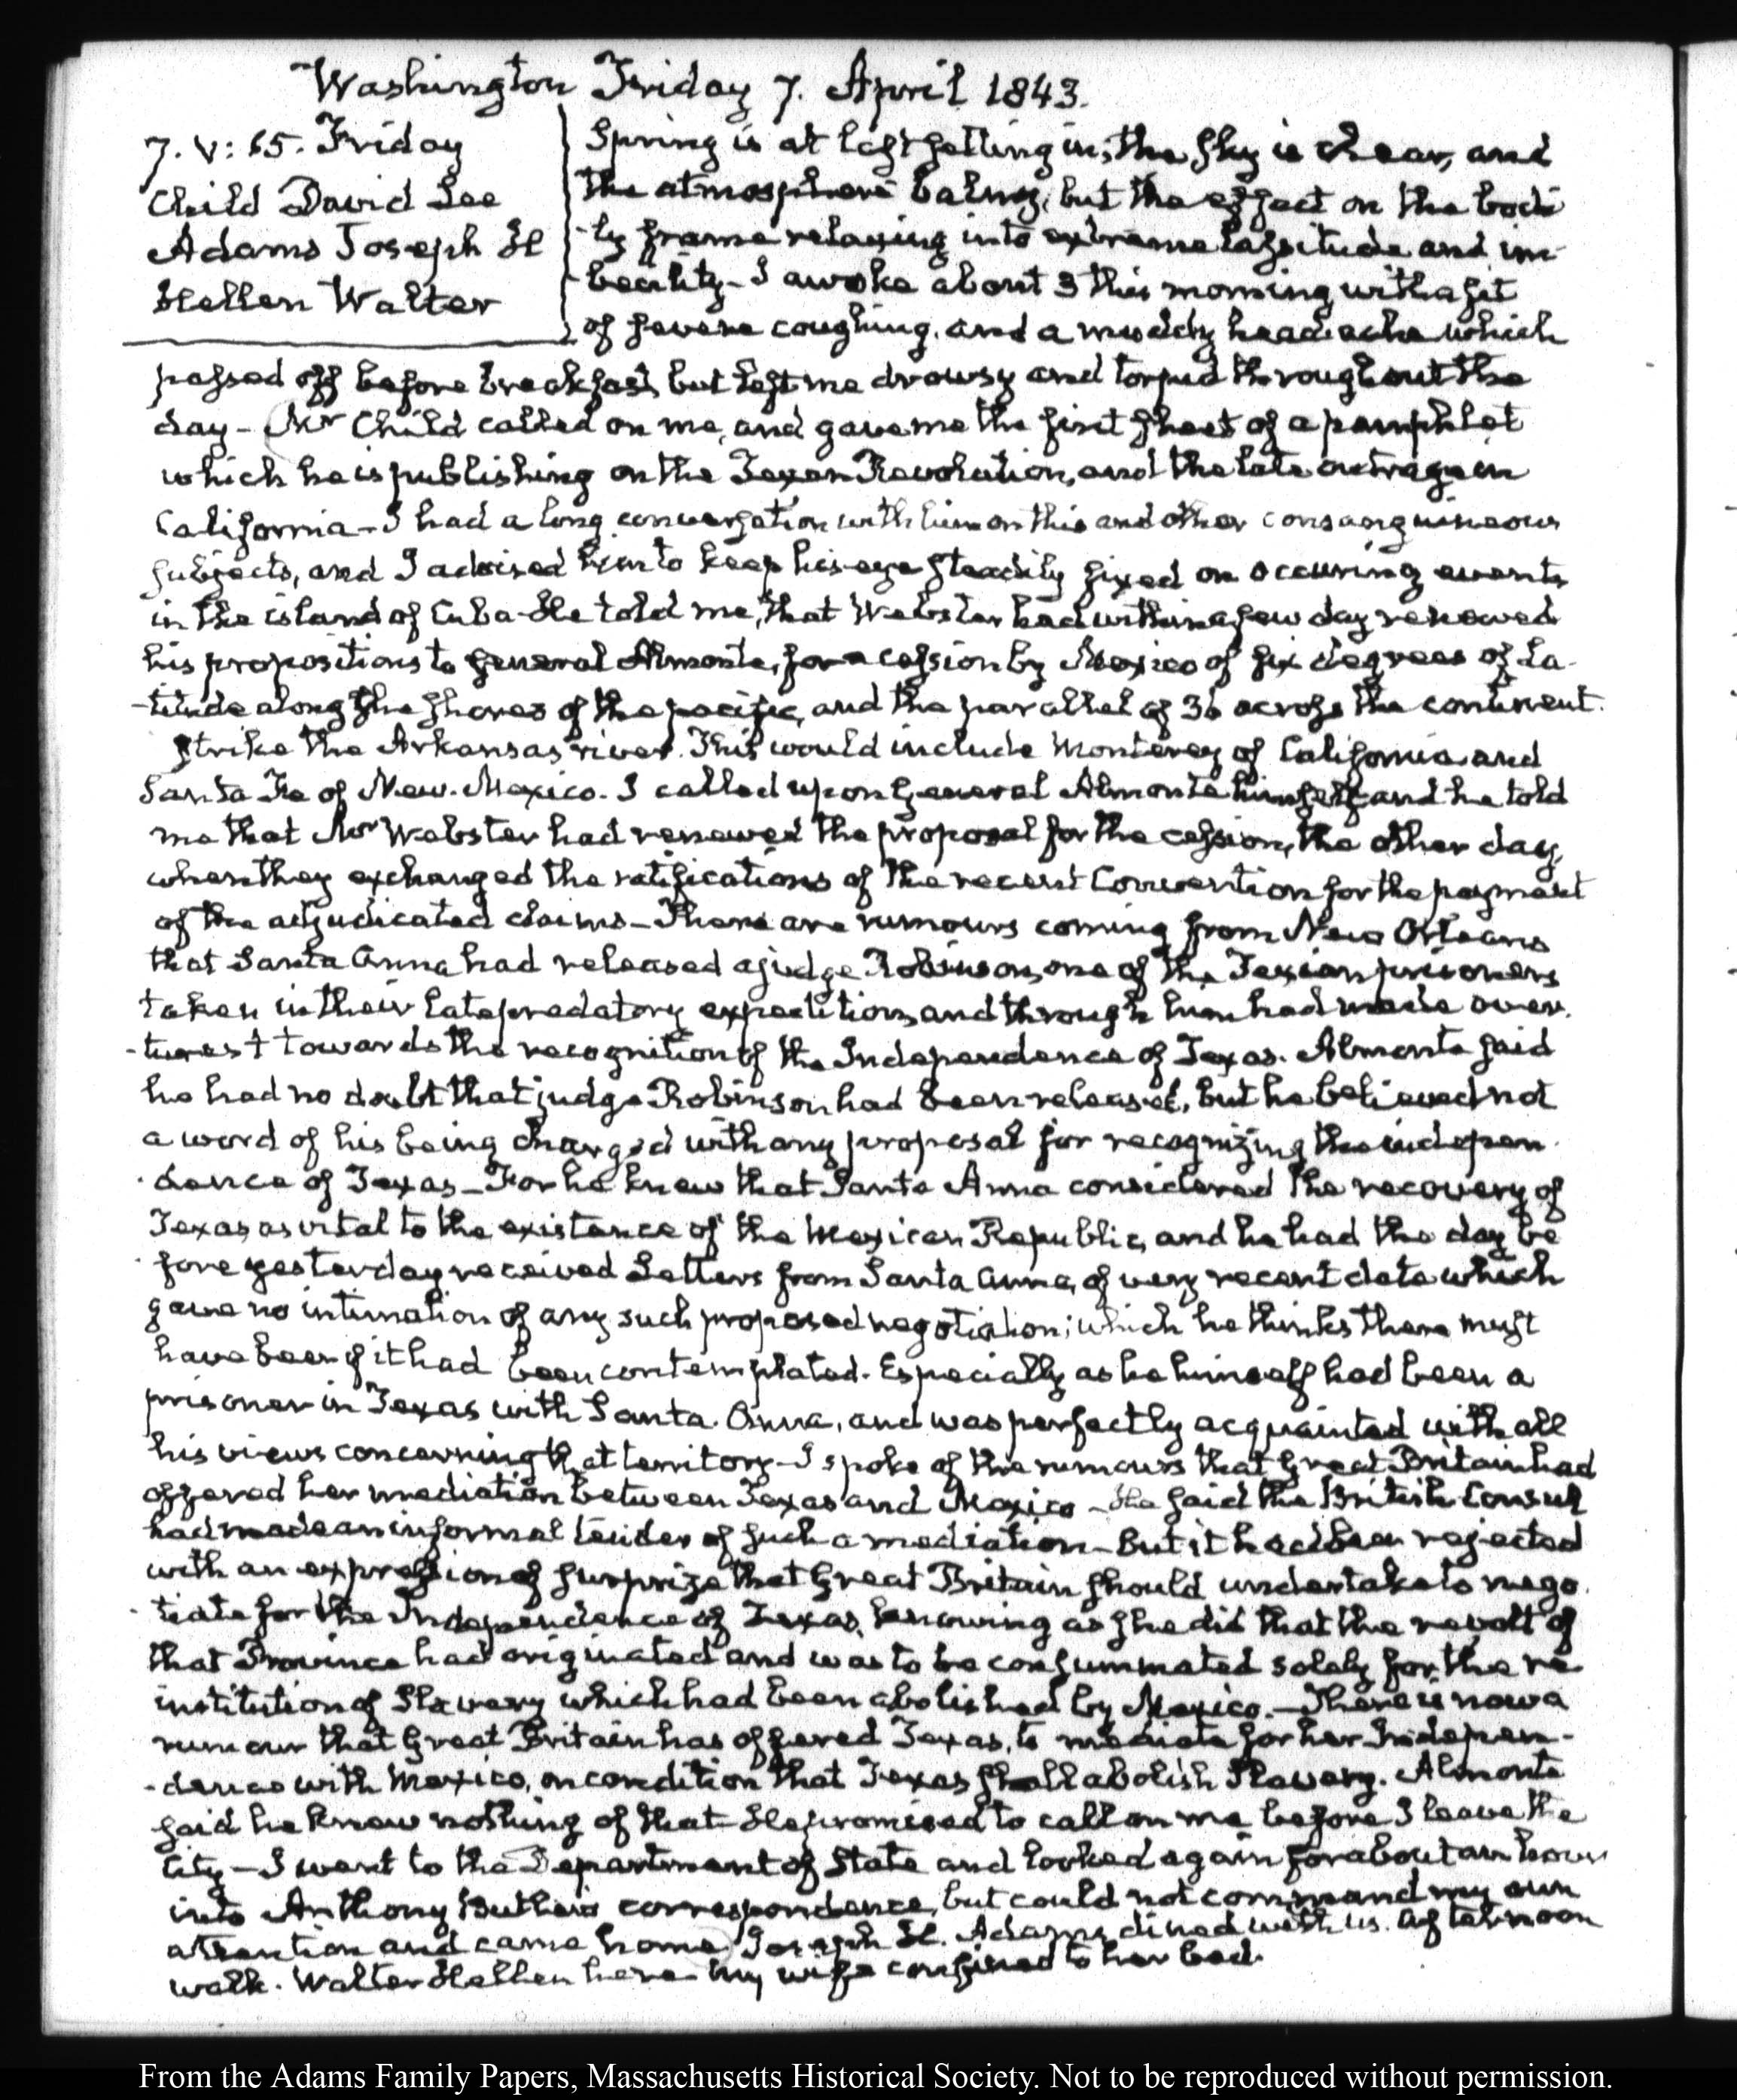 Washington Friday 7. April 1843.
7. V: 15. Friday
Child David Lee
Adams Joseph H
Hellen Walter
Spring is at last setting in; the sky is clear, and
the atmosphere balmy; but the effect on the bodi
-ly frame relaxing into extreme lassitude and im-
becility - I awoke about 3 this morning with a fit
of severe coughing, and a muddy head-ache which
passed off before breakfast, but left me drowsy and torpid throughout the
day - Mr Child called on me, and gave me the first sheet of a pamphlet
which he is publishing on the Texan Revolution, and the late outrage in
California - I had a long conversation with him on this and other consanguineous
subjects, and I advised him to keep his eye steadily fixed on occurring events
in the island of Cuba - He told me, that Webster had within a few day renewed
his propositions to General Almonte, for a cession by Mexico of six degrees of La-
-titude along the shores of the pacific, and the parallel of 36 across the continent.
strike the Arkansas river. This would include Monterey of California and
Santa Fe of New-Mexico. I called upon General Almonte himself, and he told
me that Mr Webster had renewed the proposal for the cession, the other day,
when they exchanged the ratifications of the recent Convention for the payment
of the adjudicated claims - There are rumours coming from New Orleans
that Santa Anna had released a judge Robinson, one of the Texian prisoners
taken in their late predatory expedition, and through him had made over.
-tures towards the recognition of the Independence of Texas. Almonte said
he had no doubt that judge Robinson had been released, but he believed not
a word of his being charged with any proposal for recognizing the indepen
-dence of Texas - For he knew that Santa Anna considered the recovery of
Texas as vital to the existence of the Mexican Republic, and he had the day be
-fore yesterday received Letters from Santa Anna, of very recent date which
gave no intimation of any such proposed negotiation; which he thinks there must
have been if it had been contemplated. Especially as he himself had been a
prisoner in Texas with Santa Anna, and was perfectly acquainted with all
his views concerning that territory - I spoke of the rumours that Great Britain had
offered her mediation between Texas and Mexico - He said the British Consul
had made an informal tender of such a mediation - But it had been rejected
with an expression of surprize that Great Britain should undertake to nego
-tiate for the Independence of Texas, knowing as she did that the revolt of
that Province had originated and was to be consummated solely for the re
institution of Slavery which had been abolished by Mexico. - There is now a
rumour that Great Britain has offered Texas, to mediate for her Indepen-
-dence with Mexico, on condition that Texas shall abolish Slavery. Almonte
said he knew nothing of that - He promised to call on me before I leave the
City - I went to the Department of State and looked again for about an hour
into Anthony Butler's correspondence, but could not command my own
attention and came home Joseph H. Adams dined with us. Afternoon
walk. Walter Hellen here - My wife confined to her bed.
From the Adams Family Papers, Massachusetts Historical Society. Not to be reproduced without permission.